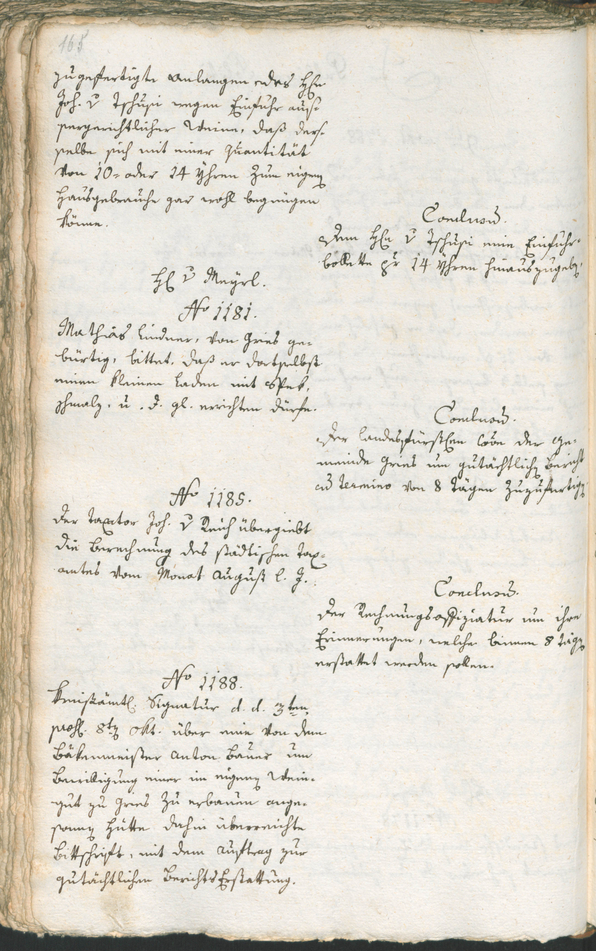 168
zugefertigte Anlangen des Hℓn
Joh. v Tschusi wegen Einfuhr aus-
sergerichtlicher Weine, daß der-
selbe sich mit einer Quantität
von 10- oder 14 Yhren zum eigen
Hausgebrauche gar wohl begnügen
könne.
Conclusū.
Dem Hℓn v Tschusi eine Einfuhr-
bollette pr 14 Yhren hinauszugeb.
Hℓ v Mayrl.
No 1181.
Mathias Lindner, von Gries ge-
bürtig, bittet, daß er dortselbst
einen kleinen Laden mit Spek,
Schmalz, u. d. gl. errichten dürfe.
Conclusū.
Der Landesfürstlen der Ge-
meinde Gries um gutächtlich Bericht
ad Termino von 8 Tägen zuzufertig
No 1185.
Der Taxator Joh. v Reich übergiebt
die Berechnung des städtischen Tax-
amtes vom Monat August l. J.
Conclusū.
Der Rechnungsoffiziatur um ihre
Erinnerungen, welche binnen 8 Täg
erstattet werden sollen.
No 1188.
Kreisämtl. Signatur d. d. 3ten
prost. 8ten Okt. über eine von dem
Bäkenmeister Anton Bauer um
Bewilligung einer im eigenen Wein-
gut zu Gries zu erbauen ange-
Hütte dahin überreichte
Bittschrift, mit dem Auftrag zur
gutächtlichen BerichtsErstattung.